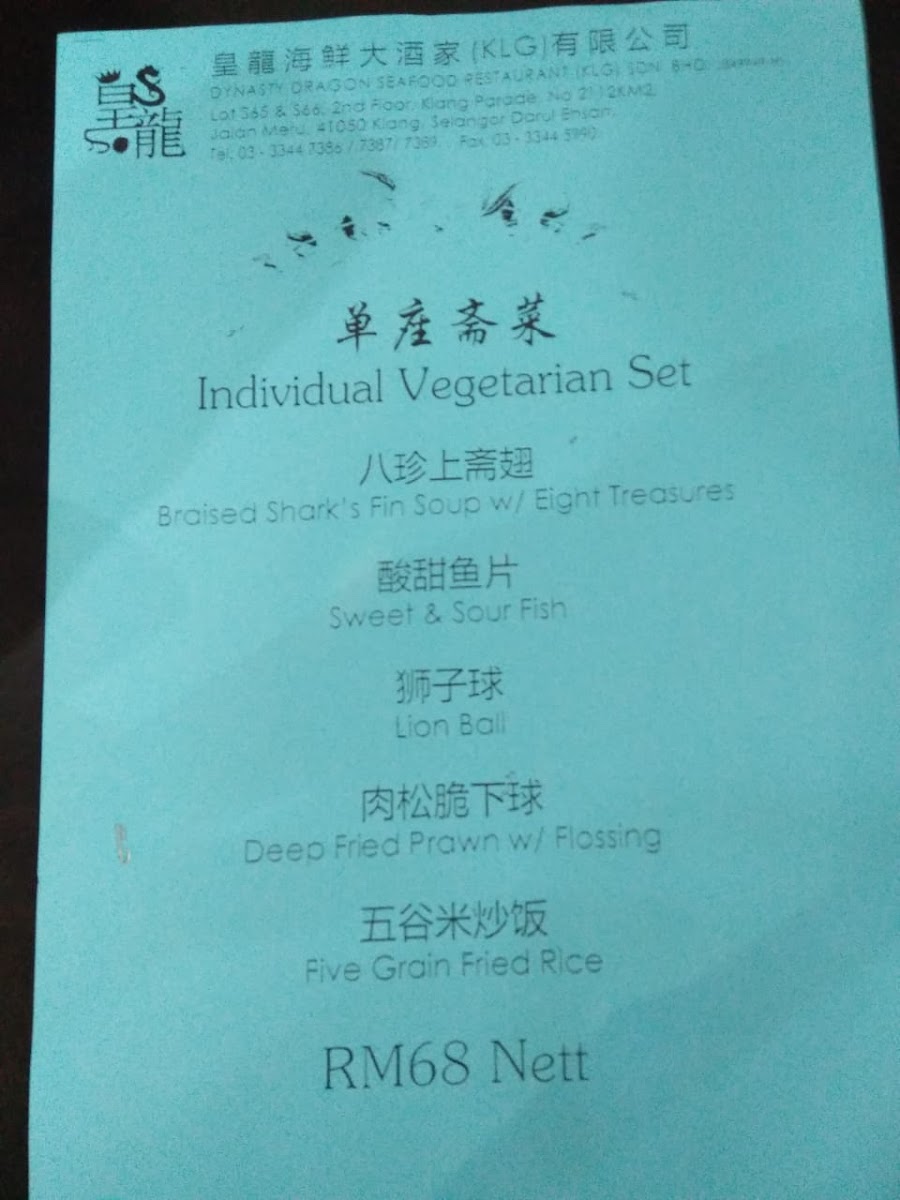 皇龍
皇龍海鮮大酒家(KLG)有限公司
DYNASTY DRAGON SEAFOOD RESTAURANT (KLG) SDN. BHD.
Lot S65 & S66, 2nd Floor, Klang Parade, No 2112KM2,
Jalan Meru, 41050 Klang, Selangor Darul Ehsan.
Tel: 03 - 3344 7386 / 7387/ 7389 Fax: 03 - 3344 5990
单座斋菜
Individual Vegetarian Set
八珍上斋翅
Braised Shark's Fin Soup w/ Eight Treasures
酸甜鱼片
Sweet & Sour Fish
狮子球
Lion Ball
肉松脆下球
Deep Fried Prawn w/ Flossing
五谷米炒饭
Five Grain Fried Rice
RM68 Nett